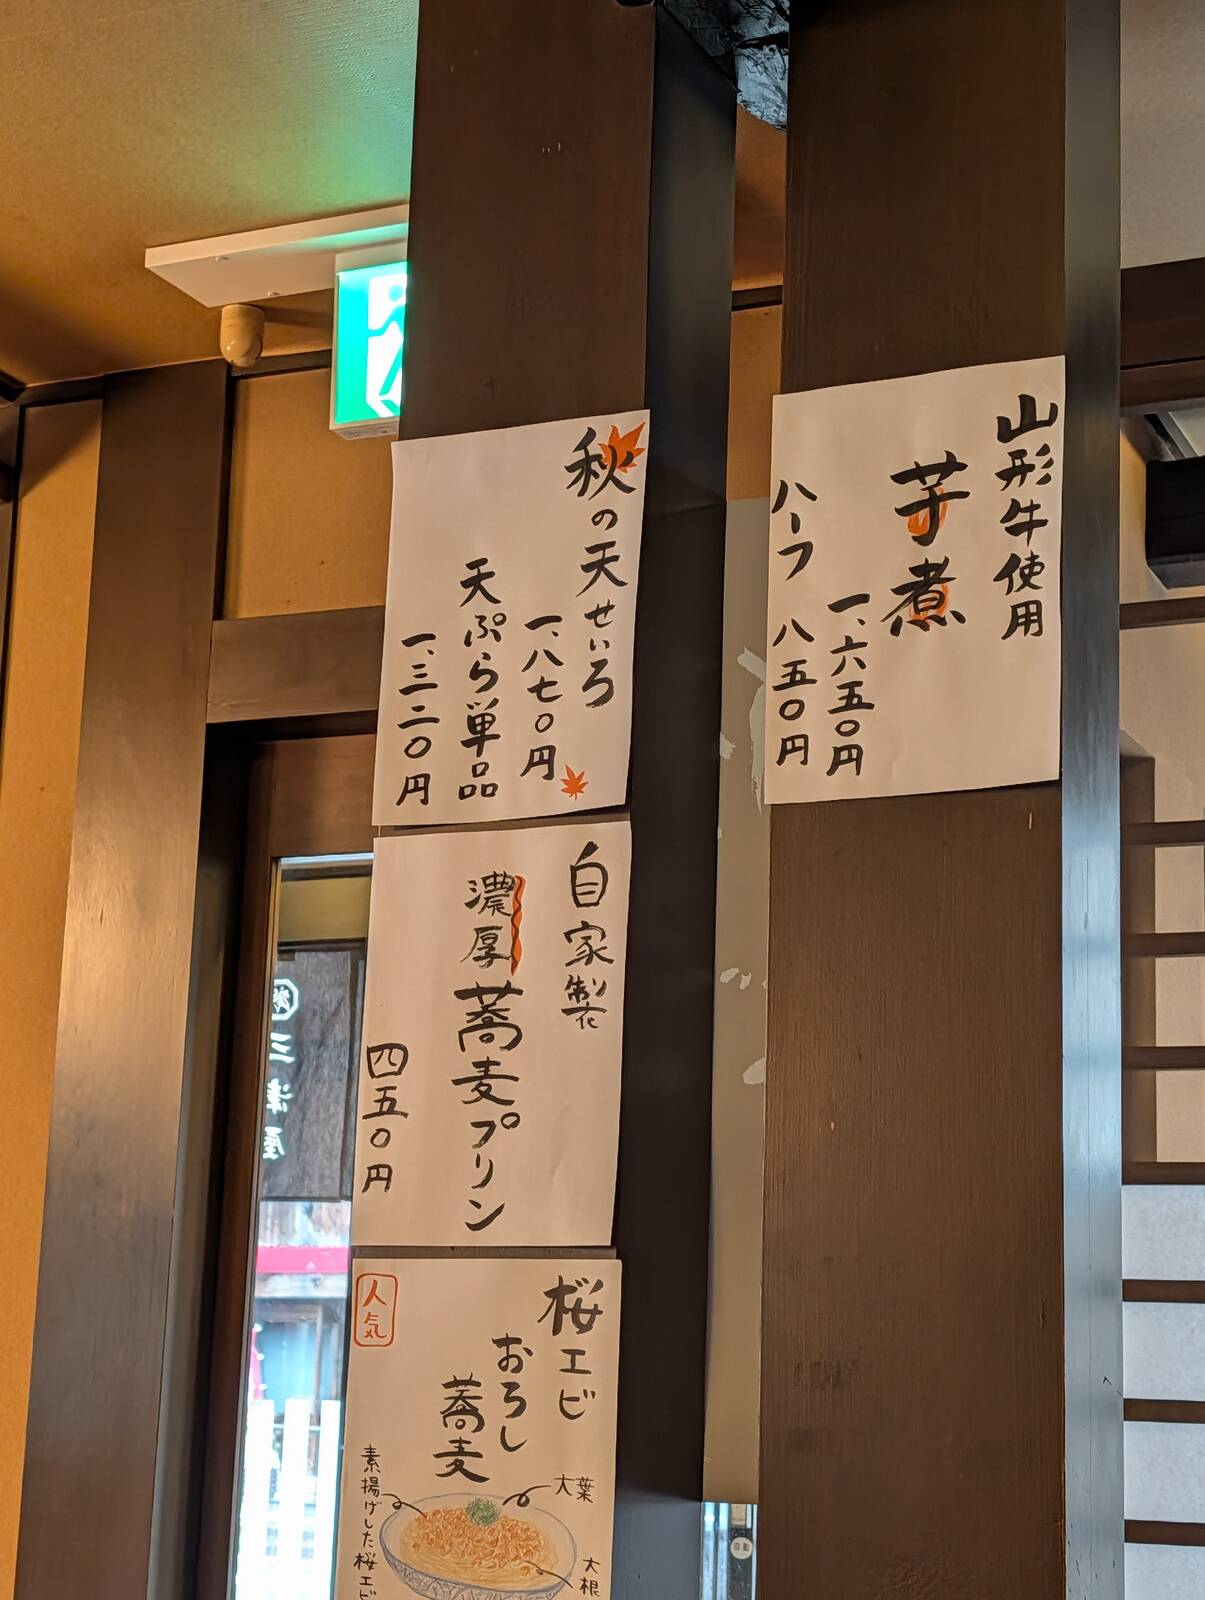 山形牛使用
芋煮
一、六五〇円
ハーフ 八五〇円
秋の天せいろ
一、八七〇円
天ぷら単品
一、三二〇円
自家製
濃厚
蕎麦プリン
四五〇円
桜エビ
おろし
蕎麦
人気
大葉
素揚げした桜エビ
大根
三津屋